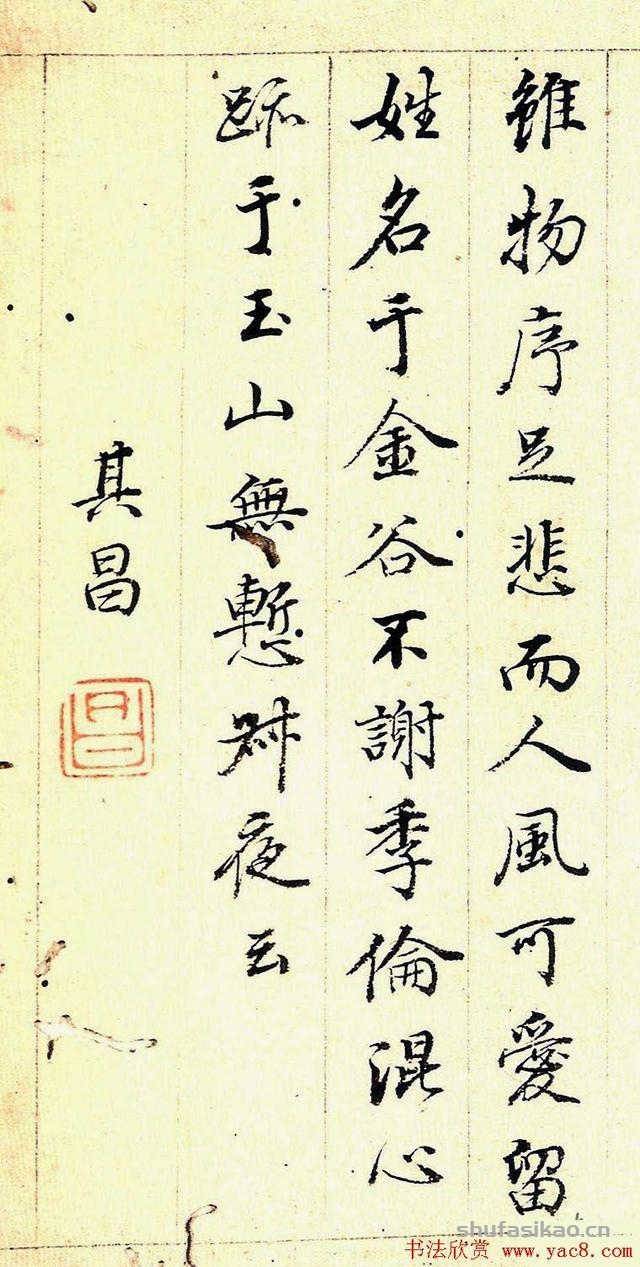 雖物序足悲而人風可愛留
姓名于金谷不謝季倫混心
跡于玉山無慙叔夜云
其昌
shufasikao.cn
书法欣赏 www.yac8.com